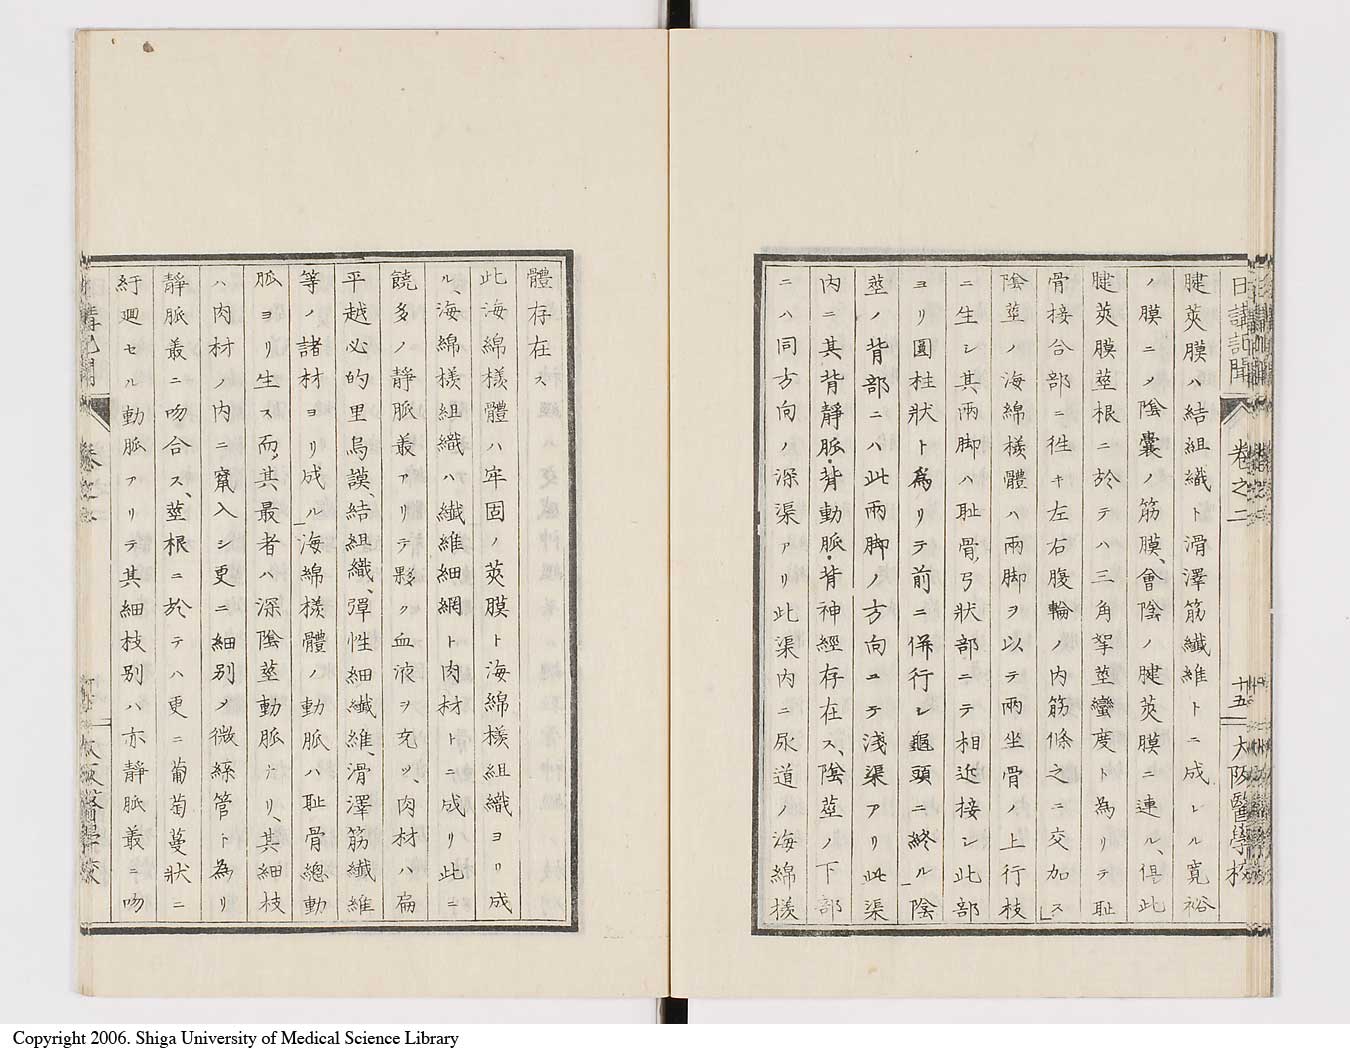 日講記聞 卷之二 十五 大阪醫學校
腱莢膜ハ結組織ト滑澤筋纎維トニ成レル寛裕
ノ膜ニノ陰囊ノ筋膜、會陰ノ腱莢膜ニ連ル、但此
腱莢膜莖根ニ於テハ三角挐莖蠻度ト為リテ耻
骨接合部ニ徃キ左右腹輪ノ内筋條之ニ交加ス」
陰莖ノ海綿様體ハ兩脚ヲ以テ兩坐骨ノ上行枝
ニ生シ其兩脚ハ耻骨弓狀部ニテ相近接シ此部
ヨリ圓柱狀ト為リテ前ニ併行シ龜頭ニ終ル」陰
莖ノ背部ニハ此兩脚ノ方向ニテ淺渠アリ此渠
内ニ其背靜脈・背動脈・背神經存在ス、陰莖ノ下部
ニハ同方向ノ深渠アリ此渠内ニ尿道ノ海綿様
體存在ス
此海綿様體ハ牢固ノ莢膜ト海綿様組織ヨリ成
ル、海綿様組織ハ纎維細網ト肉材トニ成リ此ニ
饒多ノ靜脈叢アリテ夥ク血液ヲ充ツ、肉材ハ扁
平越必的里烏謨、結組織、彈性細纎維滑澤筋纎維
等ノ諸材ヨリ成ル」海綿様體ノ動脈ハ耻骨總動
脈ヨリ生ス而其最者ハ深陰莖動脈ナリ、其細枝
ハ肉材ノ内ニ竄入シ更ニ細別ノ微絲管ト為リ
靜脈叢ニ吻合ス、莖根ニ於テハ更ニ葡萄蔓狀ニ
紆廻セル動脈アリテ其細枝別ハ亦靜脈叢ニ吻
日講記聞 卷之二 大阪醫學校
Copyright 2006. Shiga University of Medical Science Library